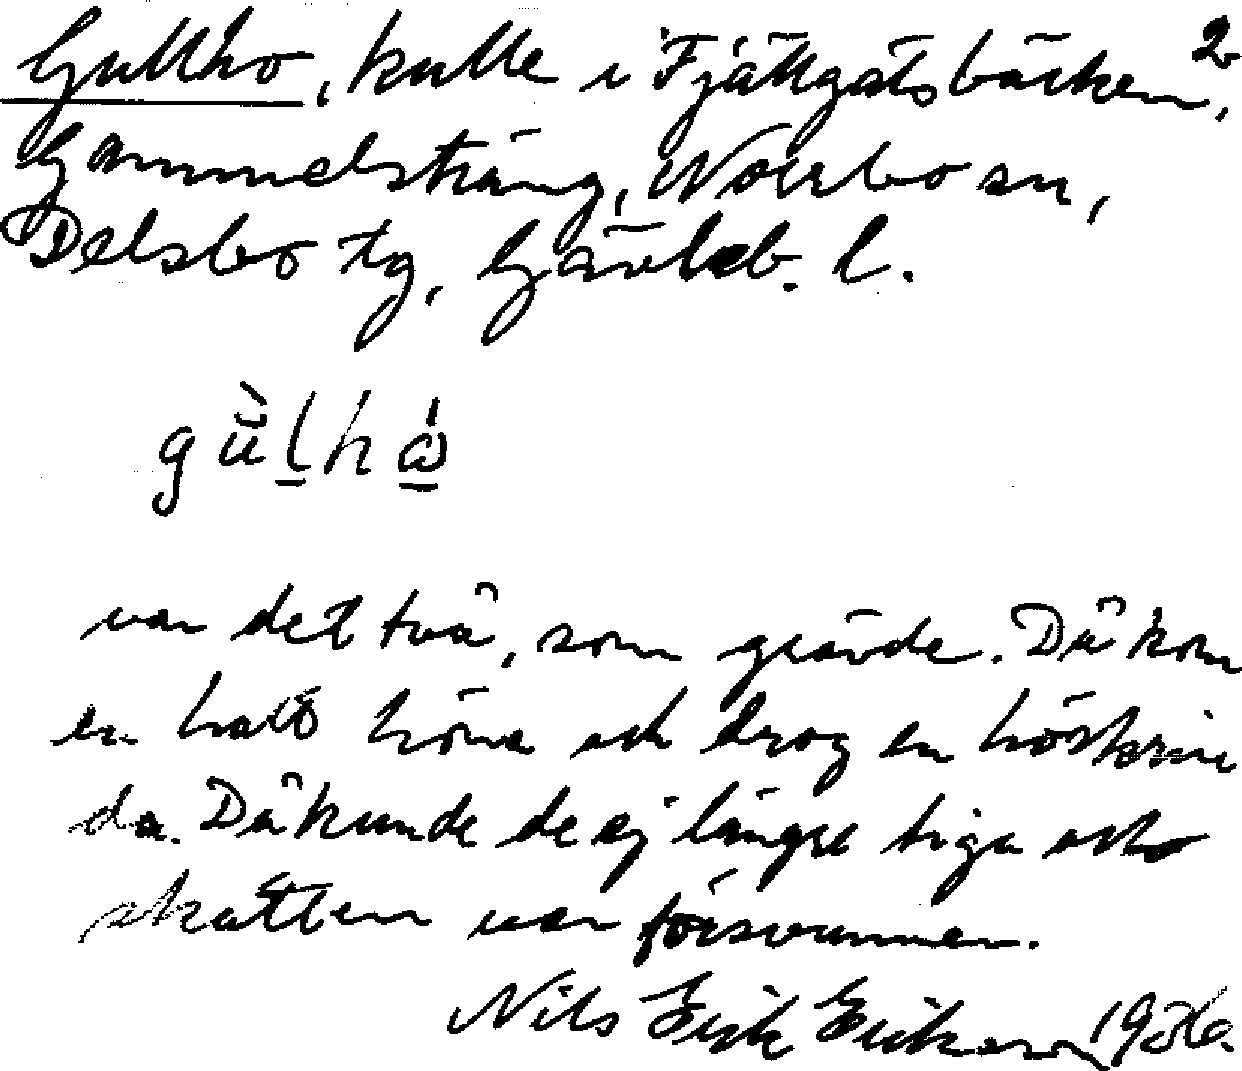 Gullho, kulle i Fjällgatsbäcken, 2
Gammelsträng, Norrbo sn,
Delsbo tg, Gävleb. l.
gu̇̀lhó
var det två, som grävde. Då kom
en halt höna och drog en höskrin
da. Då kunde de ej längre tiga och
skatten var försvunnen.
Nils Erik Erikson, 1936.